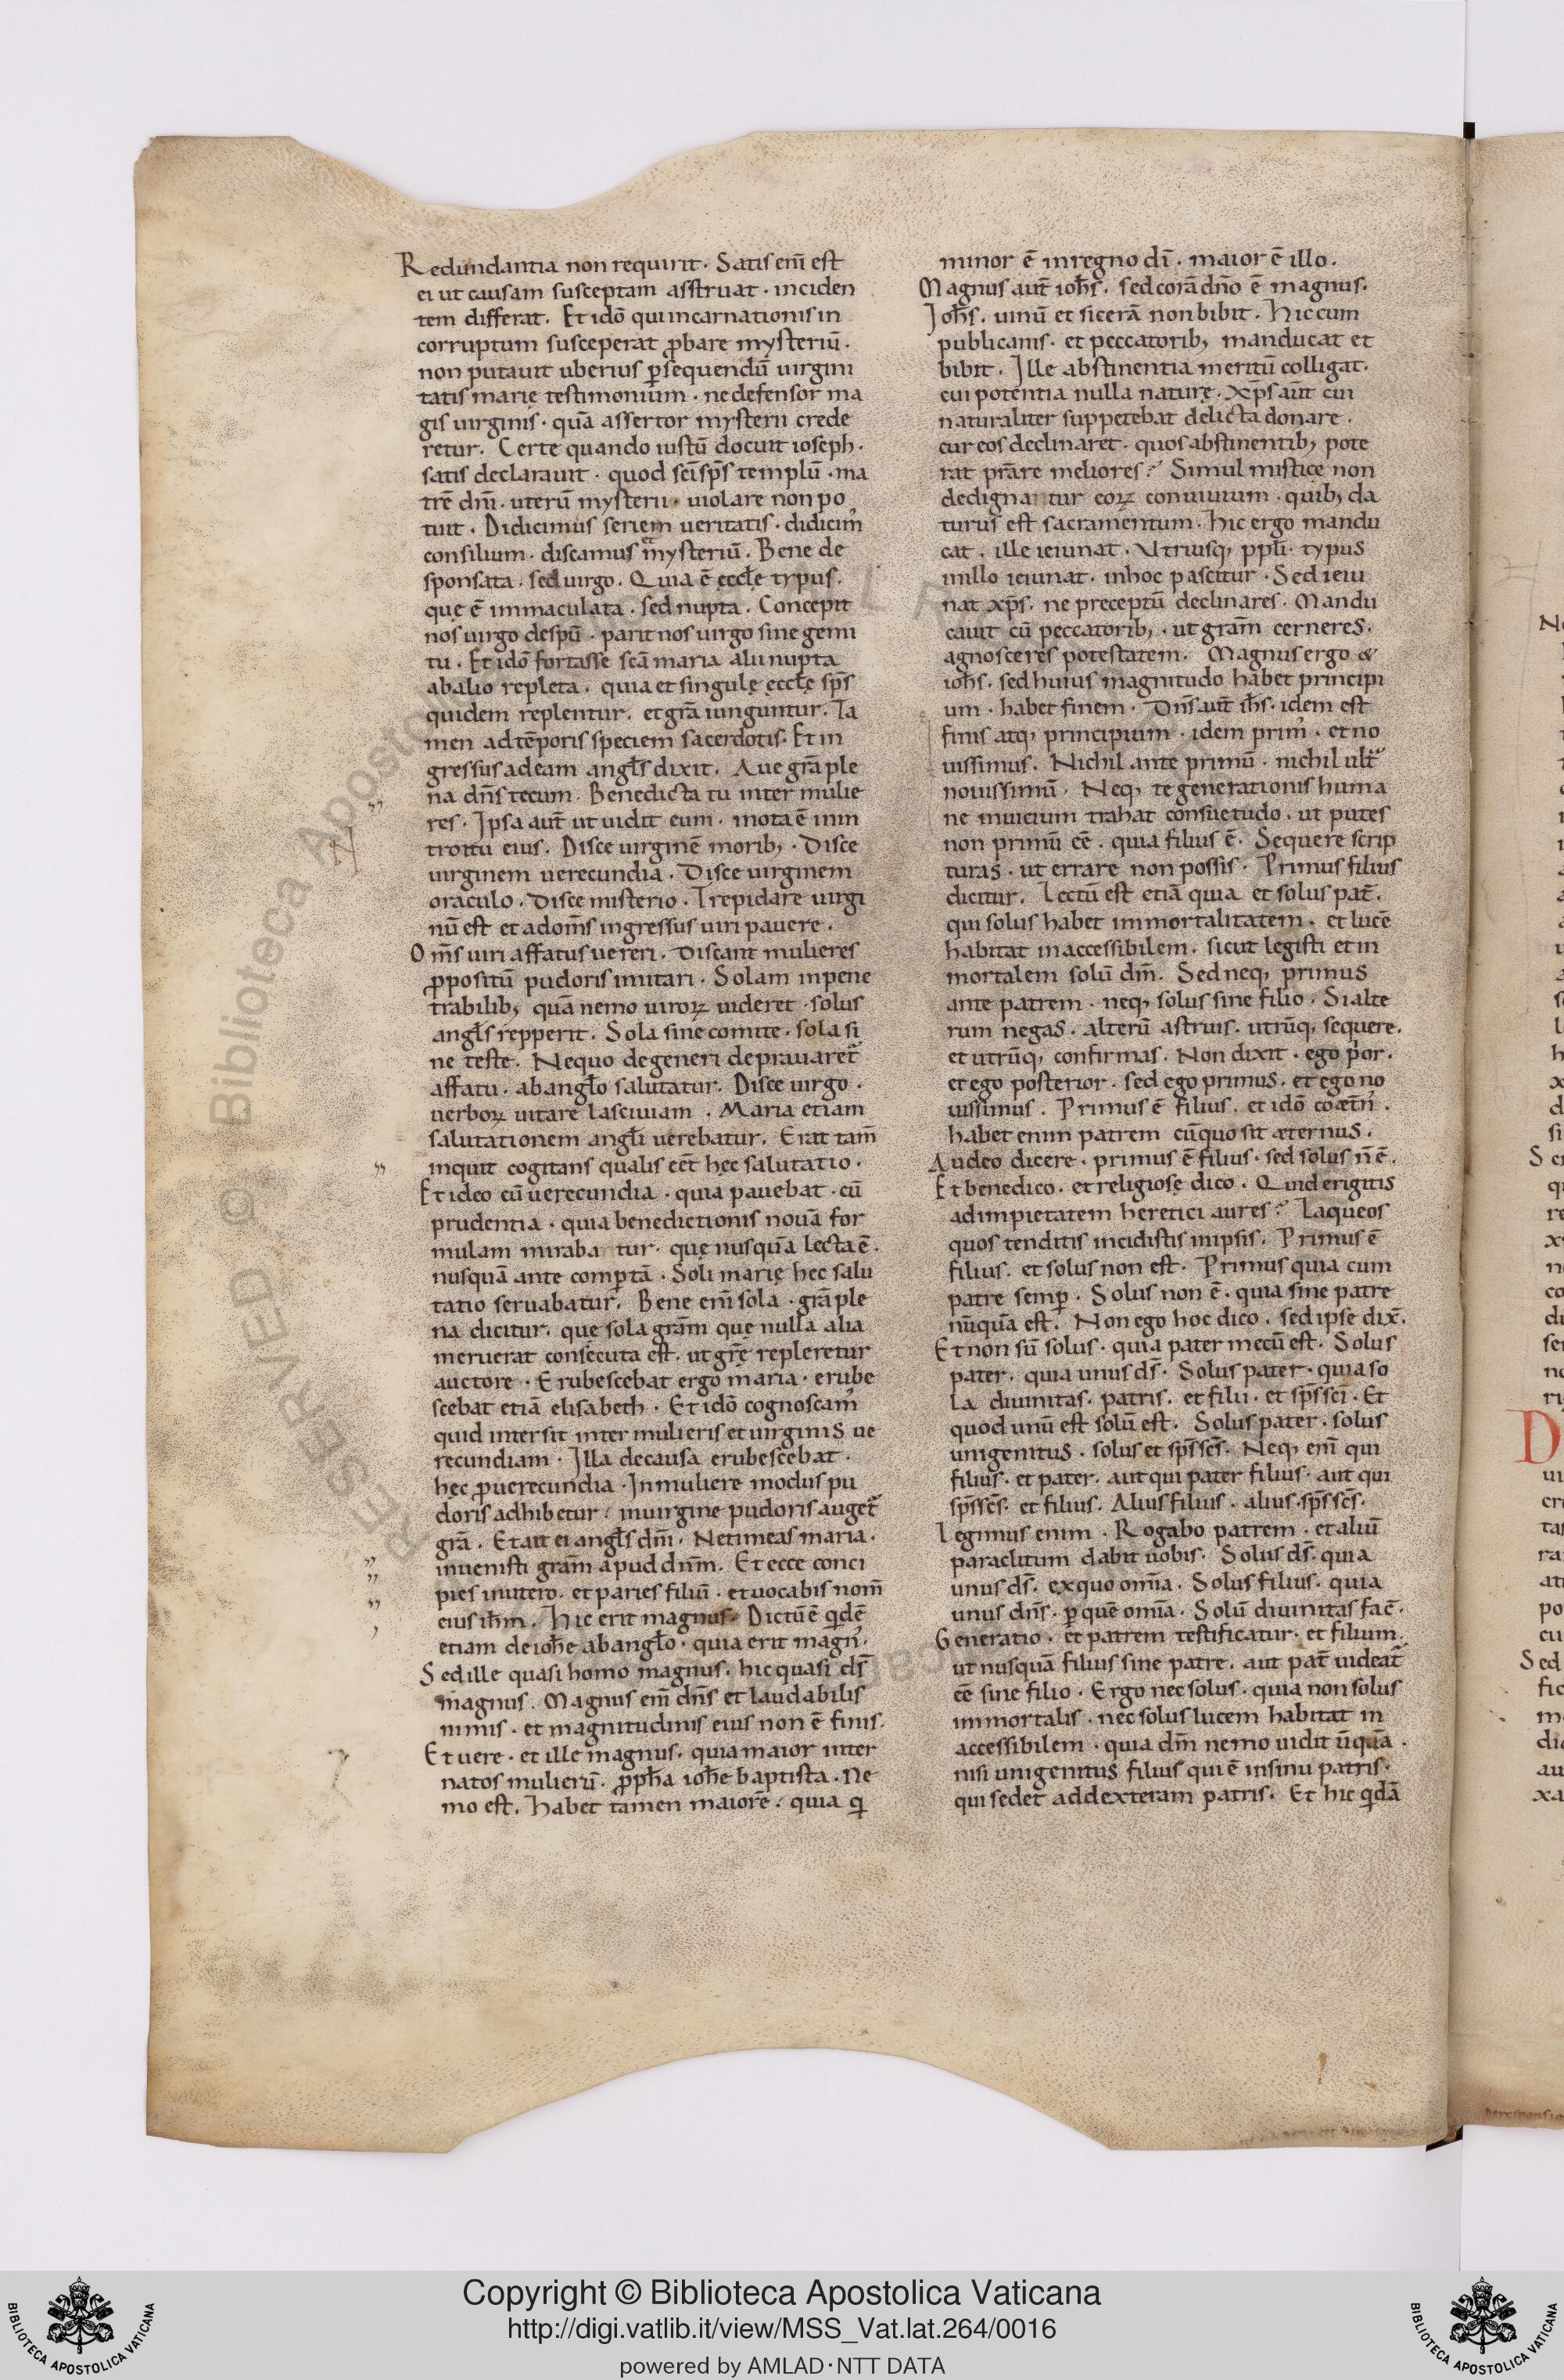 Redundantia non requirit. Satis eni̅ est
ei ut causam susceptam asstruat. inciden
tem differat. Et ido̅ qui incarnationis in
corruptum susceperat ꝓbare mysteriu̅.
non putauit uberius ꝑsequendu̅ uirgini
tatis marię testimonium. ne defensor ma
gis uirginis. qua̅ assertor mysterii crede
retur. Certe quando iustu̅ docuit ioseph.
satis declarauit. quod sci̅ sp̅s templu̅. ma
tre̅ dm̅. uteru̅ mysterii. uiolare non po
tuit. Didicimus seriem ueritatis. didicim᾽
consilium. discamus mysteriu̅. Bene de
sponsata. sed uirgo. Quia e̅ ęccl̅ę typus.
quę e̅ immaculata. sed nupta. Concepit
nos uirgo de spu̅. parit nos uirgo sine gemi
tu. Et ido̅ fortasse sca̅ maria alii nupta
ab alio repleta. quia et singulę ęccl̅ę sp̅s
quidem replentur. et gr̅a iunguntur. Ta
men ad te̅poris speciem sacerdotis. Et in
gressus ad eam angl̅s dixit. Aue gr̅a ple
na dn̅s tecum. Benedicta tu inter mulie
res. Ipsa aut̅ ut uidit eum. mota e̅ in in
troitu eius. Disce uirgine̅ morib;. Disce
uirginem uerecundia. Disce uirginem
oraculo. Disce misterio. Trepidare uirgi
nu̅ est et ad om̅s ingressus uiri pauere.
Om̅s uiri affatus uereri. Discant mulieres
ꝓpositu̅ pudoris imitari. Solam in pene
trabilib; qua̅ nemo uiroꝝ uideret. solus
angl̅s repperit. Sola sine comite. sola si
ne teste. Ne quo degeneri deprauaret᷑
affatu. ab angl̅o salutatur. Disce uirgo.
uerboꝝ uitare lasciuiam. Maria etiam
salutationem angl̅i uerebatur. Erat tam̅
inquit cogitans qualis ee̅t hęc salutatio.
Et ideo cu̅ uerecundia. quia pauebat. cu̅
prudentia. quia benedictionis noua̅ for
mulam miraba tur. quę nusqua̅ lecta e̅.
nusqua̅ ante comꝑta̅. Soli marię hec salu
tatio seruabatur. Bene eni̅ sola. gr̅a ple
na dicitur. quę sola gr̅am quę nulla alia
meruerat consecuta est. ut gr̅ę repleretur
auctore. Erubescebat ergo maria. erube
scebat etia̅ elisabeth. Et ido̅ cognoscam᾽
quid intersit inter mulieris et uirginis ue
recundiam. Illa de causa erubescebat.
hęc ꝓ uerecundia. In muliere modus pu
doris adhibetur. in uirgine pudoris auget᷑
gr̅a. Et ait ei angl̅s dm̅. Ne timeas maria.
inuenisti gr̅am apud dnm̅. Et ecce conci
pies in utero. et paries filiu̅. et uocabis nom̅
eius ih̅m. Hic erit magnus. Dictu̅ e̅ q̇de̅
etiam de ioh̅e ab angl̅o. quia erit magn᾽.
Sed ille quasi homo magnus. hic quasi ds̅
magnus. Magnus em̅ dn̅s et laudabilis
nimis. et magnitudinis eius non e̅ finis.
Et uere. et ille magnus. quia maior inter
natos mulieru̅. ꝓph̅a ioh̅e baptista. Ne
mo est. Habet tamen maiore̅. quia q̇
minor e̅ in regno di̅. maior e̅ illo.
Magnus aut̅ ioh̅s. sed cora̅ dn̅o e̅ magnus.
Ioh̅s. uinu̅ et sicera̅ non bibit. Hic cum
publicanis. et peccatorib; manducat et
bibit. Ille abstinentia meritu̅ colligat.
cui potentia nulla naturę. xp̅s aut̅ cui
naturaliter suppetebat delicta donare.
cur eos declinaret. quos abstinentib; pote
rat pr̅are meliores? Simul misticę non
dedigna tur eoꝝ conuiuium. quib; da
turus est sacramentum. Hic ergo mandu
cat. ille ieiunat. Vtriusq; ppl̅i. typus
in illo ieiunat. in hoc pascitur. Sed ieiu
nat xp̅s. ne preceptu̅ declinares. Mandu
cauit cu̅ peccatorib;. ut gr̅am cerneres.
agnosceres potestatem. Magnus ergo &
ioh̅s. sed huius magnitudo habet principi
um. habet finem. Dn̅s aut̅ ih̅s. idem est
finis atq; principium. idem prim᾽. et no
uissimus. Nichil ante primu̅. nichil ult᷑
nouissimu̅. Neq; te generationis huma
ne in uicium trahat consuetudo. ut putes
non primu̅ ee̅. quia filius e̅. Sequere scrip
turas. ut errare non possis. Primus filius
dicitur. Lectu̅ est etia̅ quia et solus pat̅.
qui solus habet immortalitatem. et luce̅
habitat inaccessibilem. sicut legisti et in
mortalem solu̅ dm̅. Sed neq; primus
ante patrem. neq; solus sine filio. Si alte
rum negas. alteru̅ astruis. utru̅q; sequere.
et utru̅q; confirmas. Non dixit. ego p̍or.
et ego posterior. sed ego primus. et ego no
uissimus. Primus e̅ filius. et ido̅ coæt̅n᾽.
habet enim patrem cu̅ quo sit æternus.
Audeo dicere. primus e̅ filius. sed solus n̅ e̅.
Et bene dico. et religiosę dico. Quid erigitis
ad impietatem heretici aures? Laqueos
quos tenditis incidistis in ipsis. Primus e̅
filius. et solus non est. Primus quia cum
patre semꝑ. Solus non e̅. quia sine patre
nu̅qua̅ est. Non ego hoc dico. sed ipse dix̅.
Et non su̅ solus. quia pater mecu̅ est. Solus
pater. quia unus ds̅. Solus pater. quia so
la diuinitas. patris. et filii. et sp̅s sci̅. Et
quod unu̅ est solu̅ est. Solus pater. solus
unigenitus. solus et sp̅s sc̅s. Neq; eni̅ qui
filius. et pater. aut qui pater filius. aut qui
sp̅s sc̅s. et filius. Alius filius. alius sp̅s sc̅s.
Legimus enim. Rogabo patrem. et aliu̅
paraclitum dabit uobis. Solus ds̅. quia
unus ds̅. ex quo om̅ia. Solus filius. quia
unus dn̅s. ꝑ que̅ om̅ia. Solu̅ diuinitas fac̅.
Generatio. et patrem testificatur. et filium.
ut nusqua̅ filius sine patre. aut pat̅ uideat᷑
ee̅ sine filio. Ergo nec solus. quia non solus
immortalis. nec solus lucem habitat in
accessibilem. quia dm̅ nemo uidit u̅qua̅.
nisi unigenitus filius qui e̅ in sinu patris.
qui sedet ad dexteram patris. Et hic q̇da̅
Copyright © Biblioteca Apostolica Vaticana
http://digi.vatlib.it/view/MSS_Vat.lat.264/0016
powered by AMLAD·NTT DATA